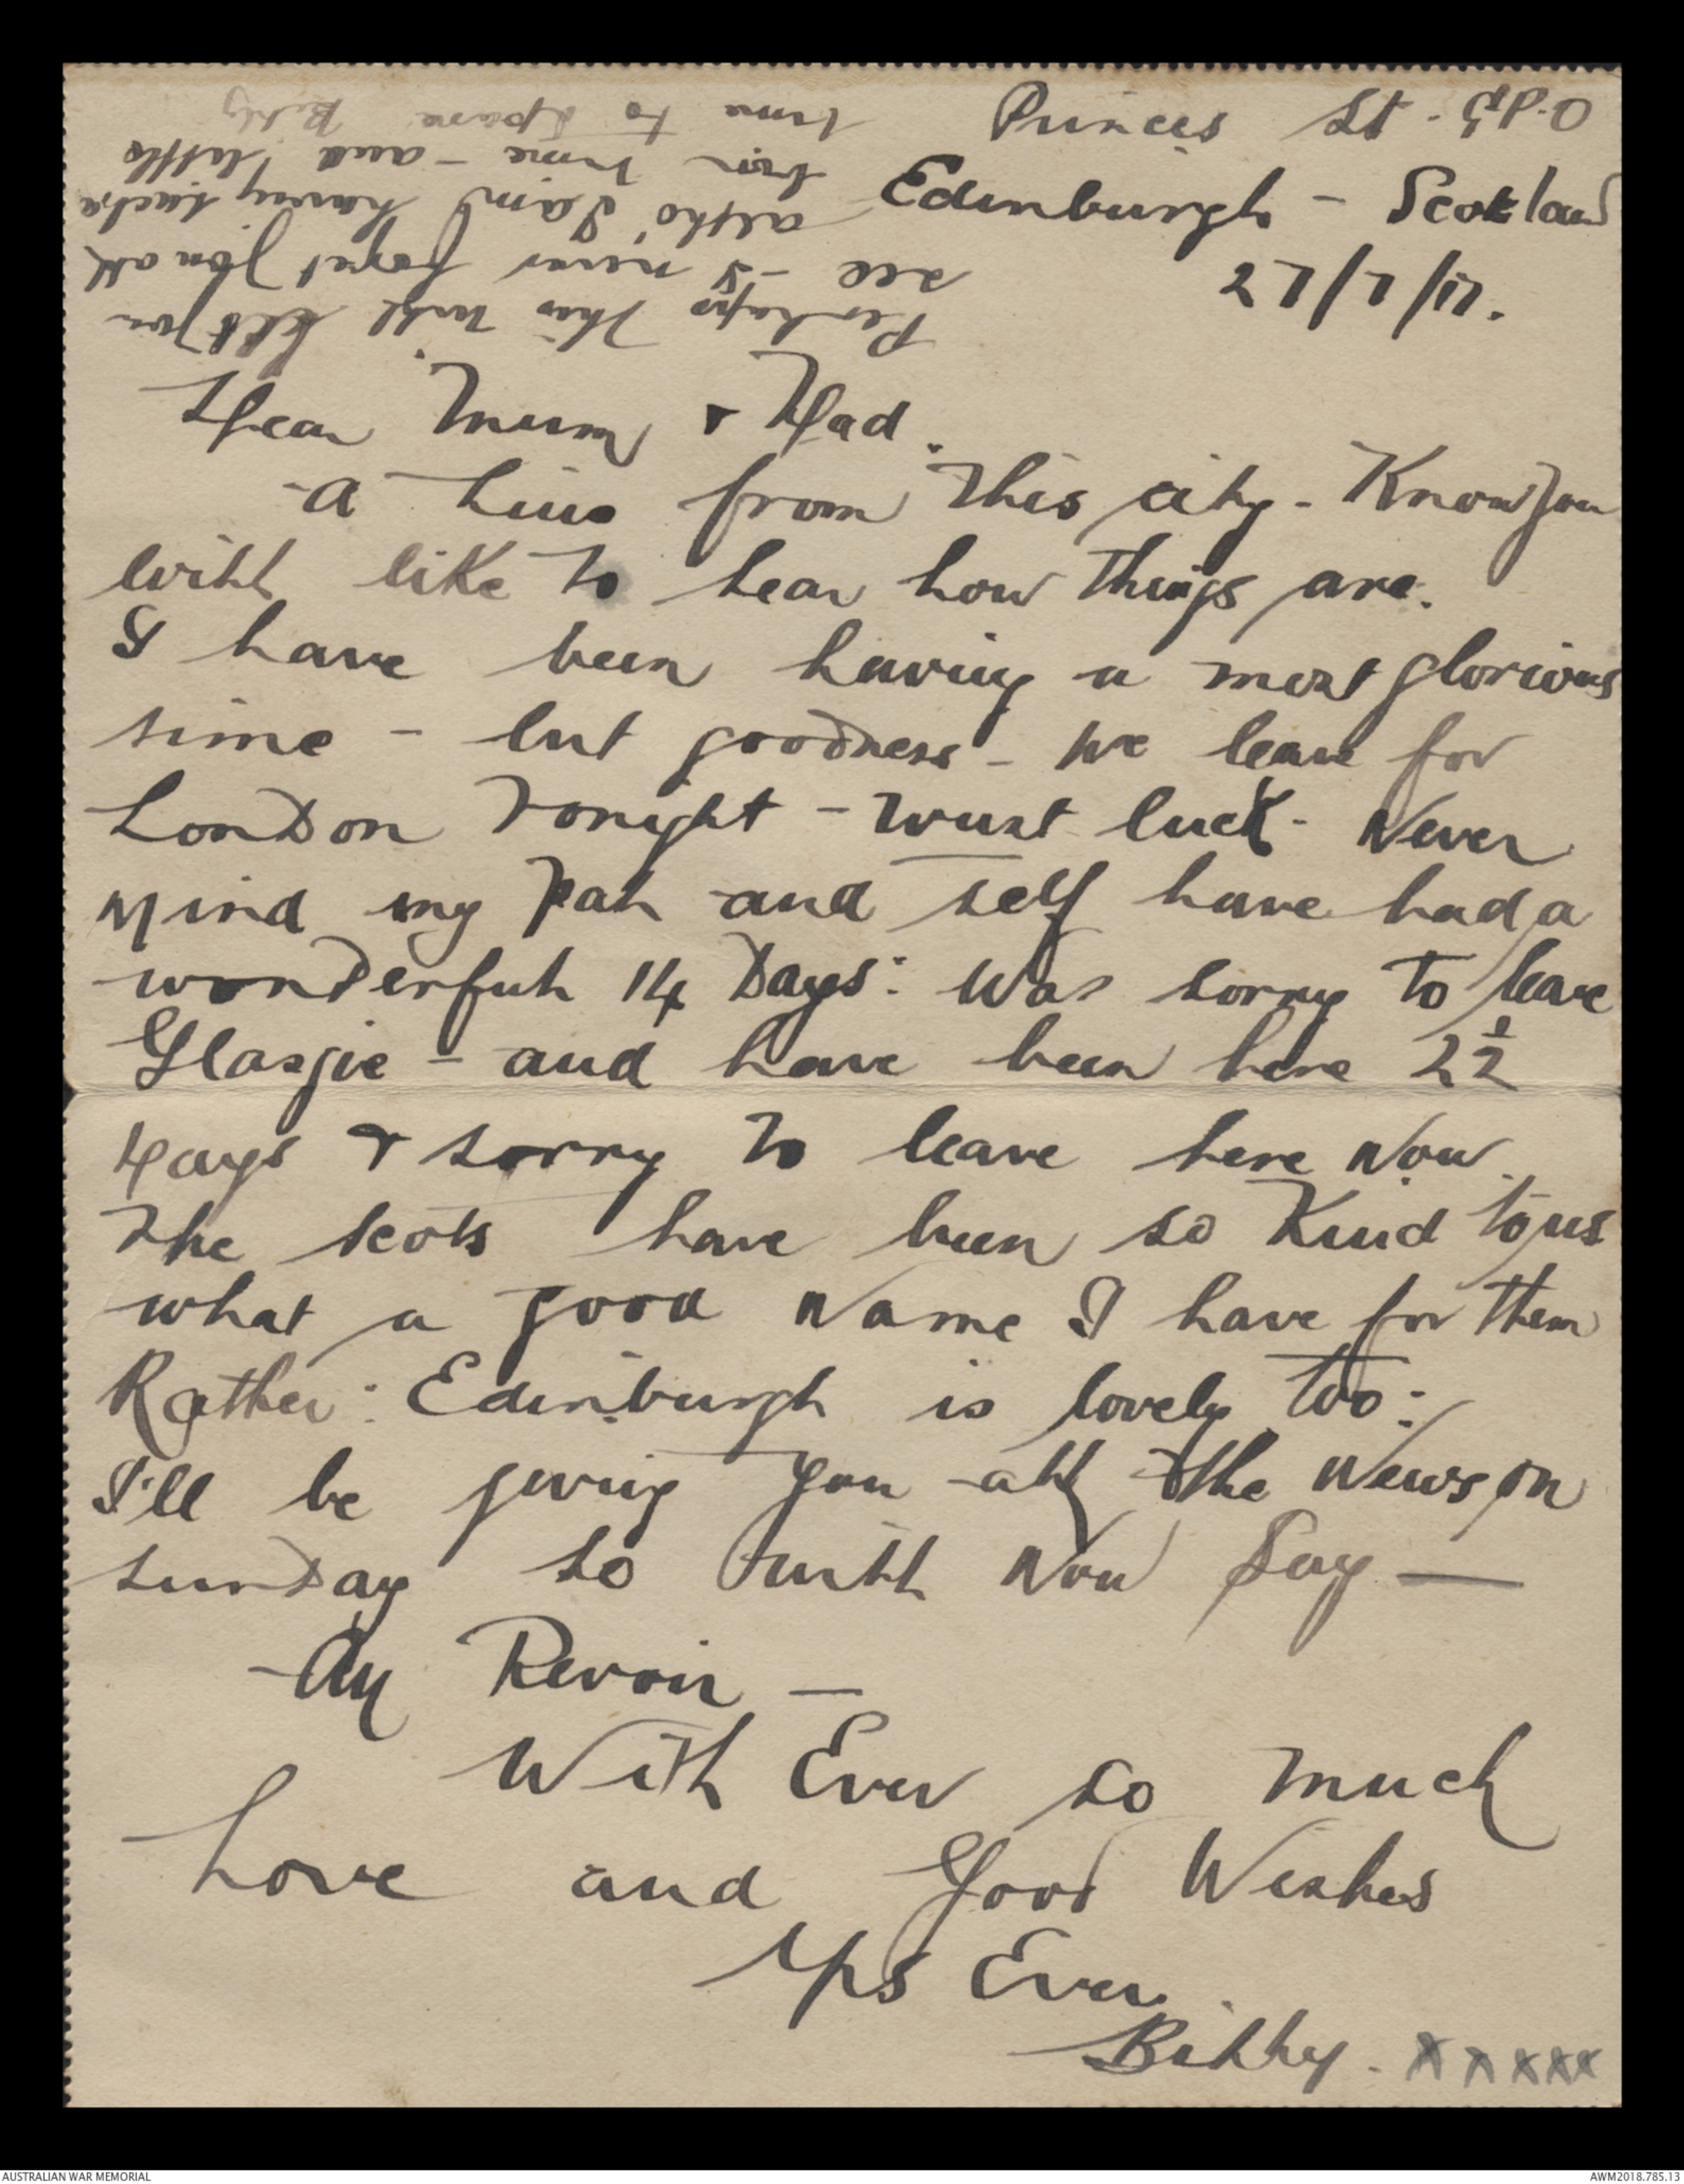 Princes St. G.P.O
Edinburgh - Scotland
27/7/17.
Dear Mum & Dad.
A Line from this city - Know you
will like to hear how things are.
I have been having a most glorious
time - but goodness - we leave for
London tonight - worst luck - Never
Mind my pal and self have had a
wonderful 14 Days: Was sorry to leave
Glasgie - and have been here 2½
Days & sorry to leave here Now.
The Scots have been so Kind to us
what a good Name I have for them
Rather: Edinburgh is lovely too:
I'll be giving you all the News on
Sunday so will Now Say —
Au Revoir —
With Ever so much
Love and Good Wishes
Yrs Ever
Billy. xxxxx
Perhaps this will let you
see - I never forget you all
altho' I am having such a
bon time - and little
time to spare Billy
AUSTRALIAN WAR MEMORIAL
AWM2018.785.13